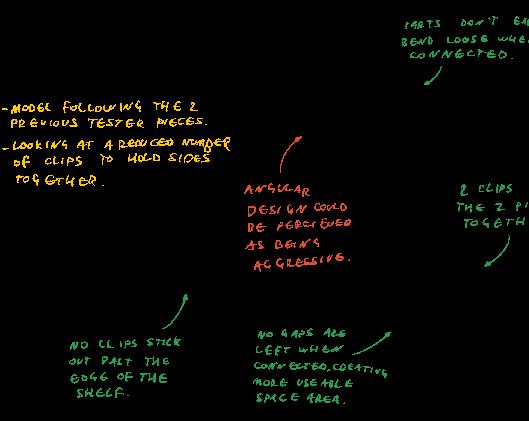 PARTS DON'T
BEND LOOSE
CONNECTED.
-MODEL FOLLOWING THE 2
PREVIOUS TESTER PIECES.
-LOOKING AT A REDUCED NUMBER
OF CLIPS TO HOLD SIDES
TOGETHER.
ANGULAR
DESIGN COULD
BE PERCIEVED
AS BEING
AGGRESSIVE.
2 CLIPS
THE 2
NO CLIPS STICK
OUT PAST THE
EDGE OF THE
SHELF.
NO GAPS ARE
LEFT WHEN
CONNECTED, CREATING
MORE USEABLE
SPACE AREA.